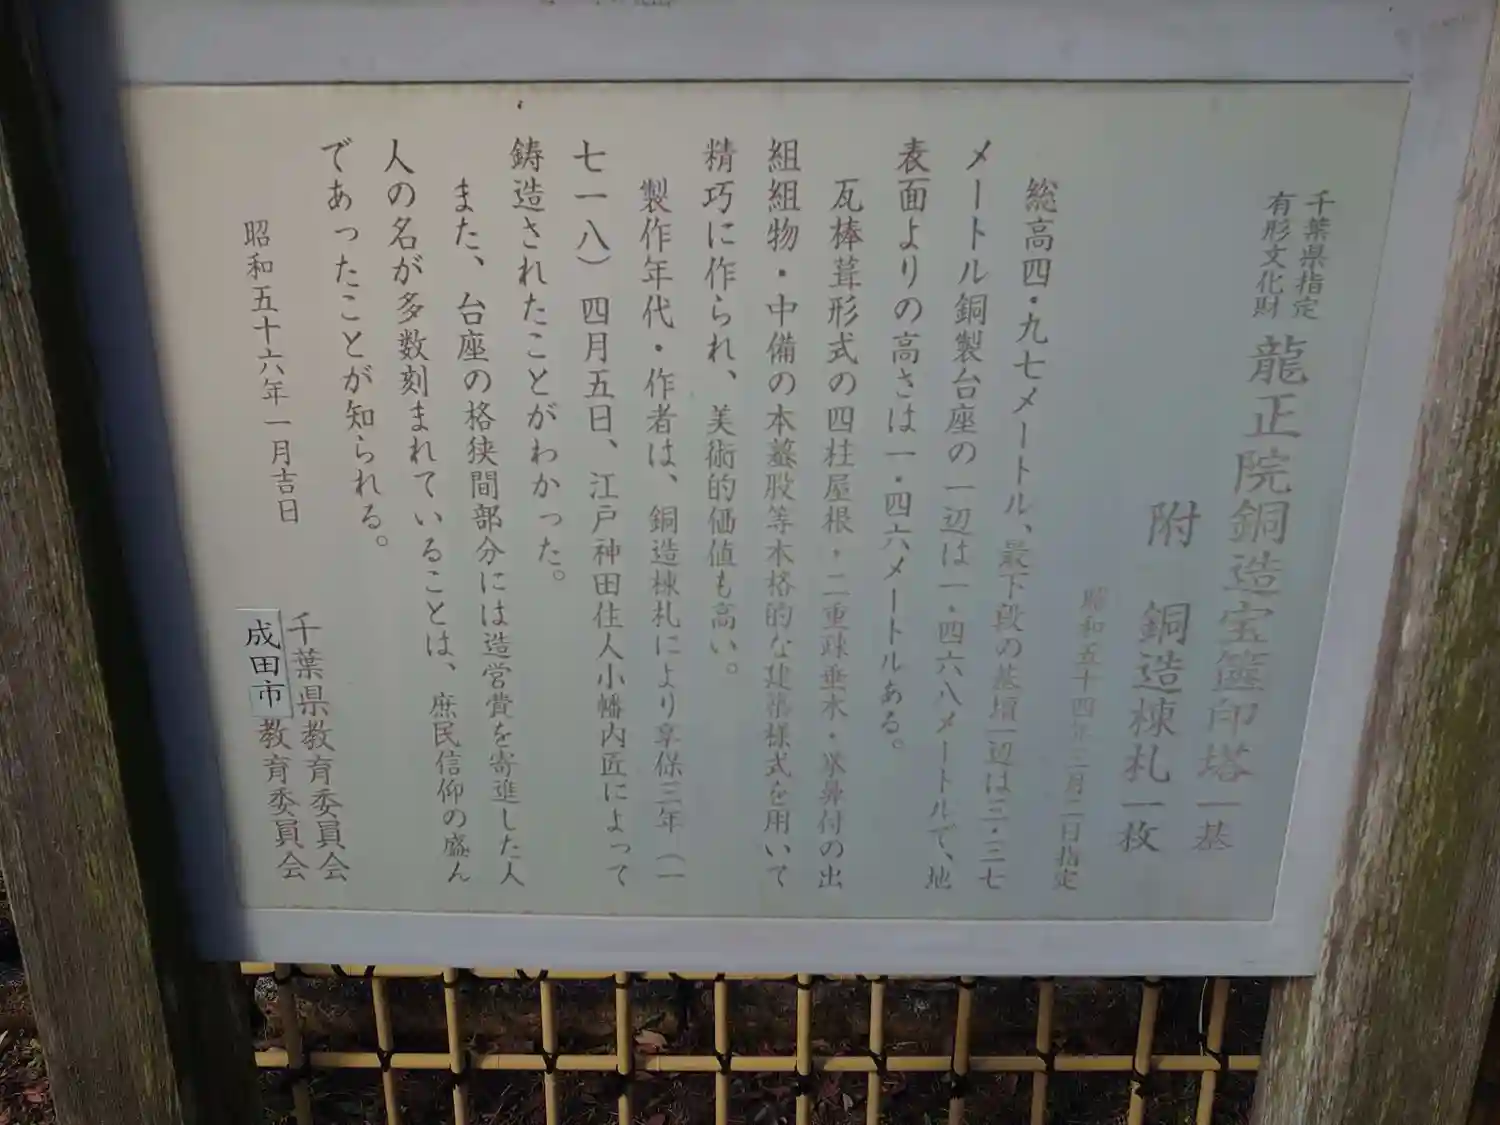 千葉県指定
有形文化財
龍正院銅造宝篋印塔一基
附 銅造棟札一枚
昭和五十四年三月二日指定
総高四・九七メートル、最下段の基壇一辺は三・三七
メートル銅製台座の一辺は一・四六八メートルで、地
表面よりの高さは一・四六メートルある。
瓦棒葺形式の四柱屋根・二重疎垂木・拳鼻付の出
組組物・中備の本蟇股等本格的な建築様式を用いて
精巧に作られ、美術的価値も高い。
製作年代・作者は、銅造棟札により享保三年（一
七一八）四月五日、江戸神田住人小幡内匠によって
鋳造されたことがわかった。
また、台座の格狭間部分には造営費を寄進した人
人の名が多数刻まれていることは、庶民信仰の盛ん
であったことが知られる。
昭和五十六年一月吉日
千葉県教育委員会
成田市教育委員会